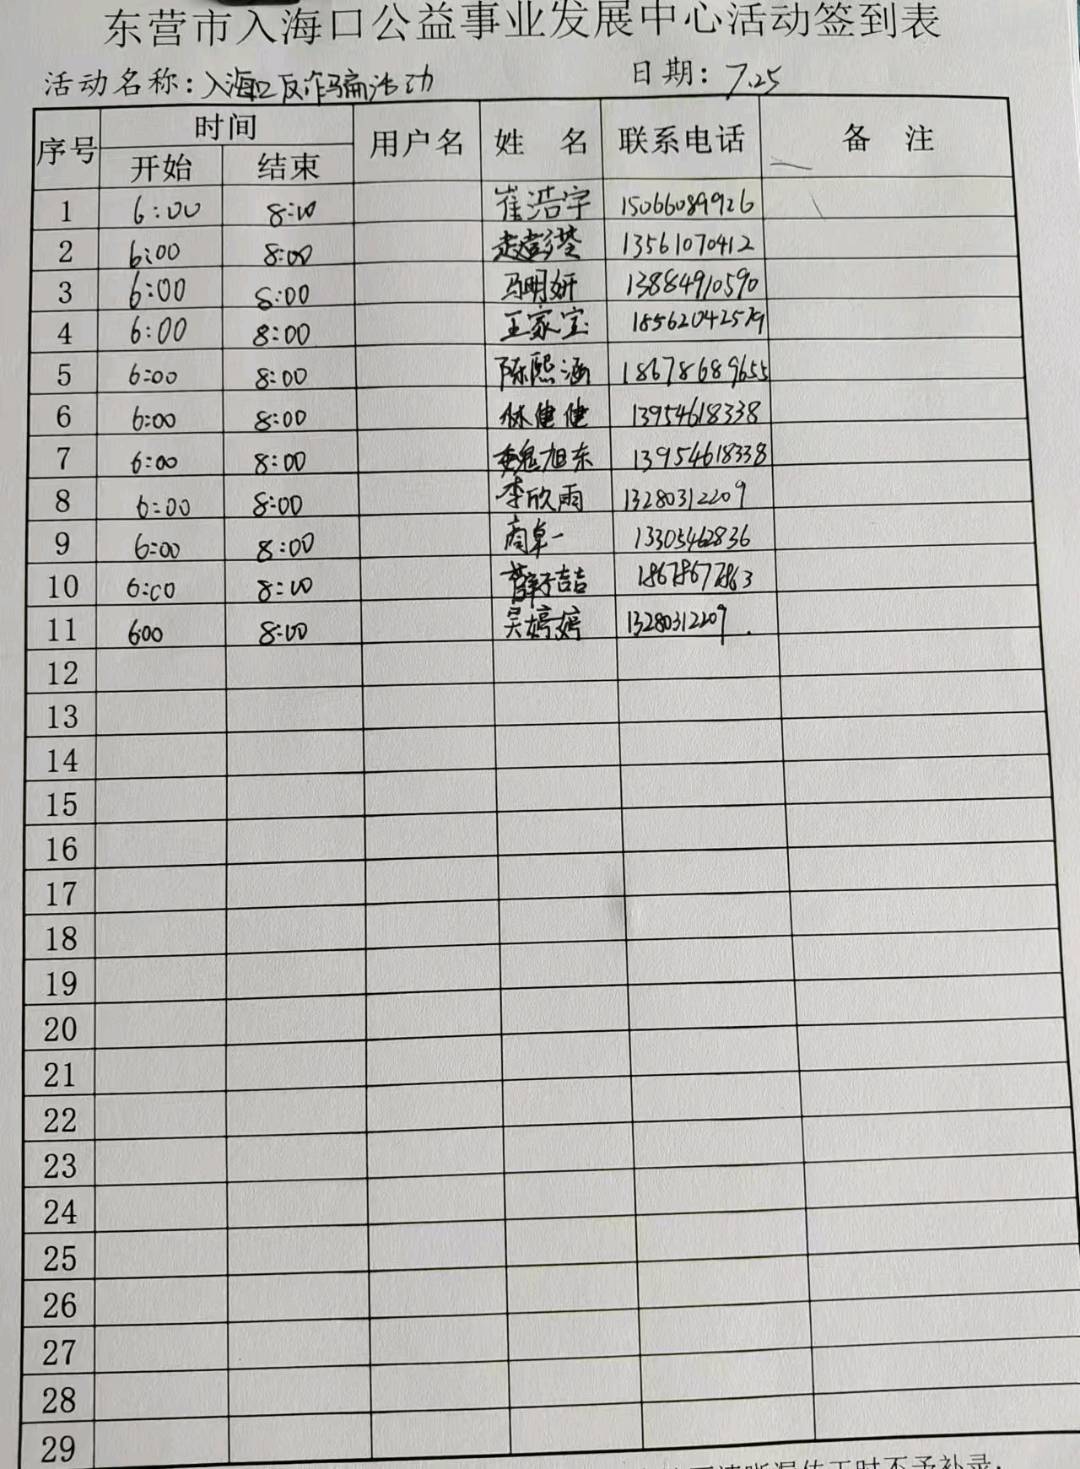 东营市入海口公益事业发展中心活动签到表
活动名称：入海口反诈骗活动 日期：7.25
序号 时间 用户名 姓 名 联系电话 备 注
开始 结束
1 6:00 8:00 崔浩宇 15066089926
2 6:00 8:00 13561070412
3 6:00 8:00 马明妍 13884910590
4 6:00 8:00 王家宝
5 6:00 8:00 陈熙涵 18678689655
6 6:00 8:00 林健健 13954618338
7 6:00 8:00 魏旭东 13954618338
8 6:00 8:00 李欣雨 13280312209
9 6:00 8:00 商卓一 13305462836
10 6:00 8:00 薛子喆 18678677863
11 600 8:00 吴婷婷 13280312209
12
13
14
15
16
17
18
19
20
21
22
23
24
25
26
27
28
29
时不予补录.